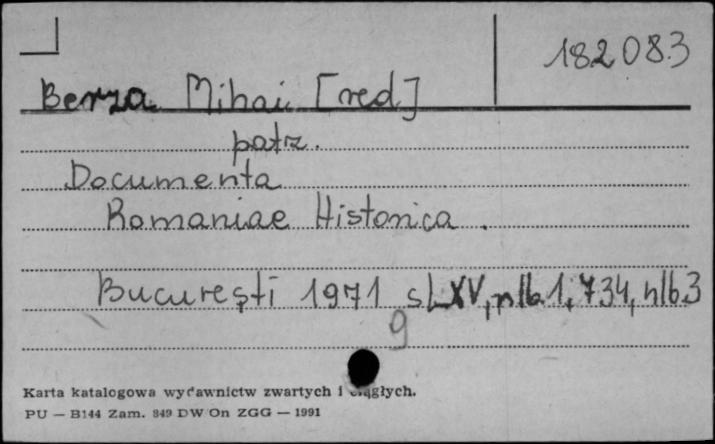 182083
Berza Mihai [red]
patrz.
Documenta
Romaniae Historica.
București 1971 s LXV, nlb 1, 734, nlb 3
9
Karta katalogowa wydawnictw zwartych i ciągłych.
PU — B144 Zam. 849 DW On ZGG — 1991